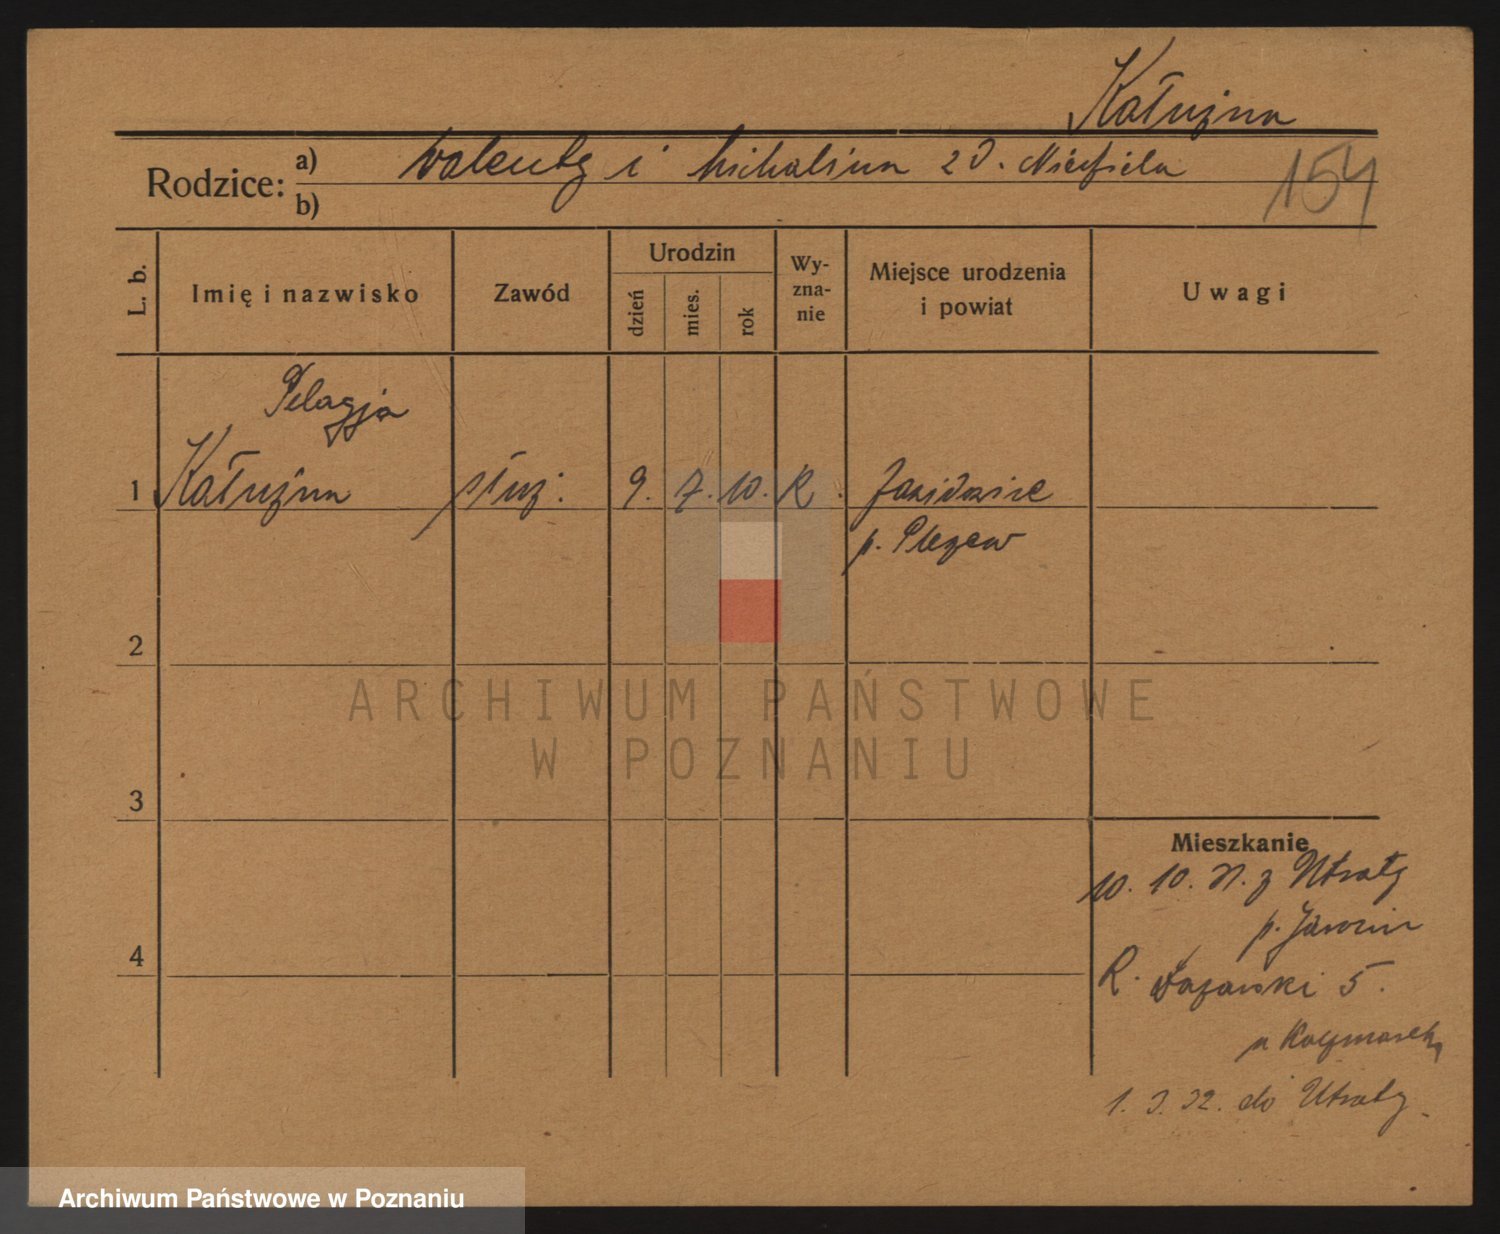 Kałużna
Rodzice: a) Walenty i Michalina z d.
b)
154
L. b.
Imię i nazwisko
Zawód
Urodzin
dzień
mies.
rok
Wy-
zna-
nie
Miejsce urodzenia
i powiat
Uwagi
Pelagja
1 Kałużna służ. 9. 7. 10. R.
p. Pleszew
2
3
4
ARCHIWUM PAŃSTWOWE
W POZNANIU
Mieszkanie
10. 10. 31. z Utraty
p. Jarocin
R. Łazarski 5.
u Kaczmarek
1. 3. 32. do Utraty
Archiwum Państwowe w Poznaniu